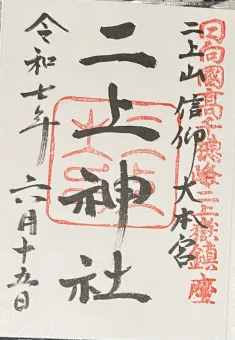 日向國高千穂峰二上嶽鎮座
二上山信仰大本宮
二上神社
令和七年六月十五日